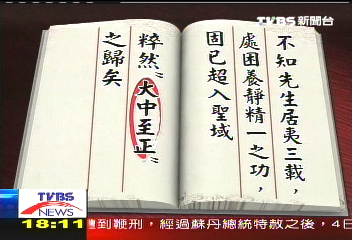 TVBS 新聞台
不知先生居夷三載,
處困養靜精一之功,
固已超入聖域
粹然"大中至正"
之歸矣
TVBS
NEWS
18:11
遭到鞭刑,經過蘇丹總統特赦之後,4日